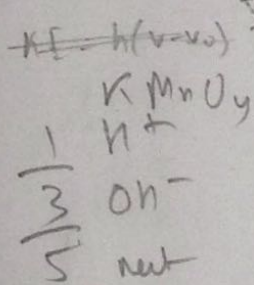 KE = h(v-v₀)
KMnO4
1 H+
3 OH-
5 neut